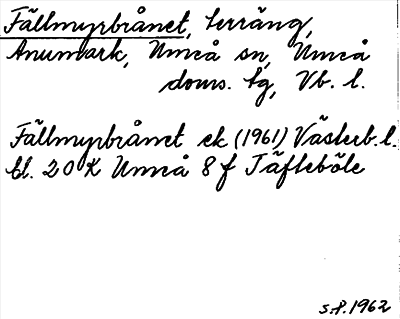 Fällmyrbrånet, terräng,
Anumark, Umeå sn, Umeå
doms. tg, Vb. l.
Fällmyrbrånet ek (1961) Västerb. l.
bl. 20 K Umeå 8 f Täfteböle
s.f. 1962